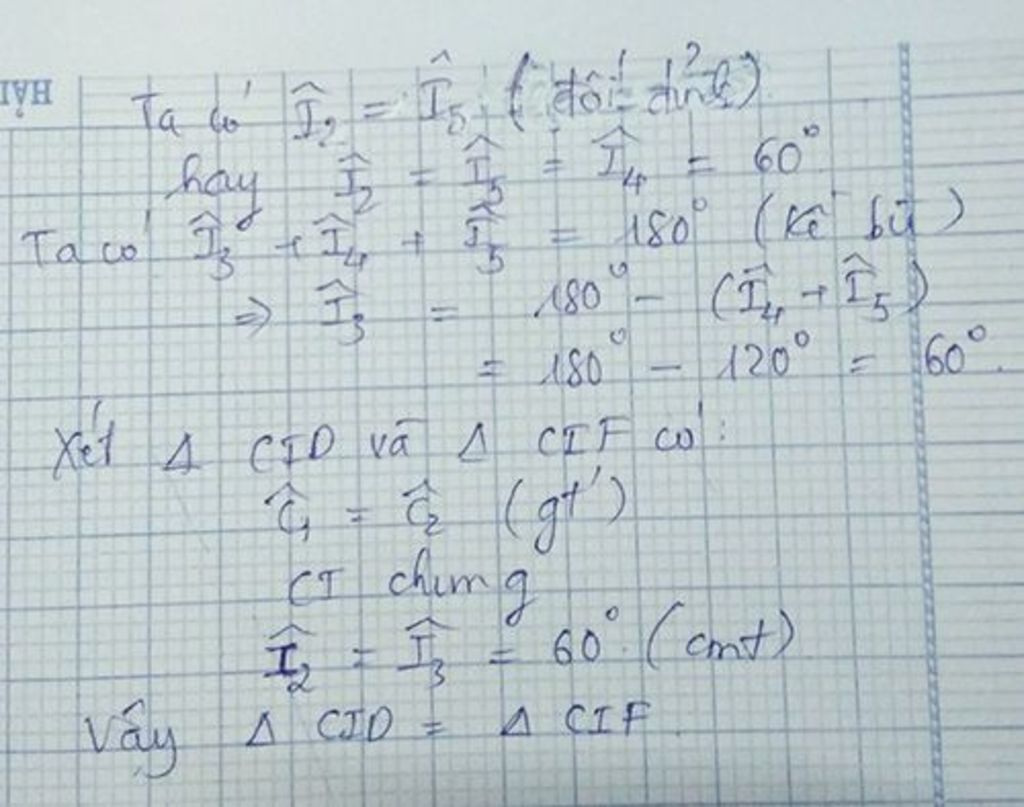 HẢI
Ta có Î₂ = Î₅ (đối đỉnh)
hay Î₂ = Î₅ = Î₄ = 60°
Ta có Î₃ + Î₄ + Î₅ = 180° (Kề bù)
⇒ Î₃ = 180° - (Î₄ + Î₅)
= 180° - 120° = 60°.
Xét Δ CID và Δ CIF có:
Ĉ₁ = Ĉ₂ (gt)
CI chung
Î₂ = Î₃ = 60° (cmt)
Vậy Δ CID = Δ CIF